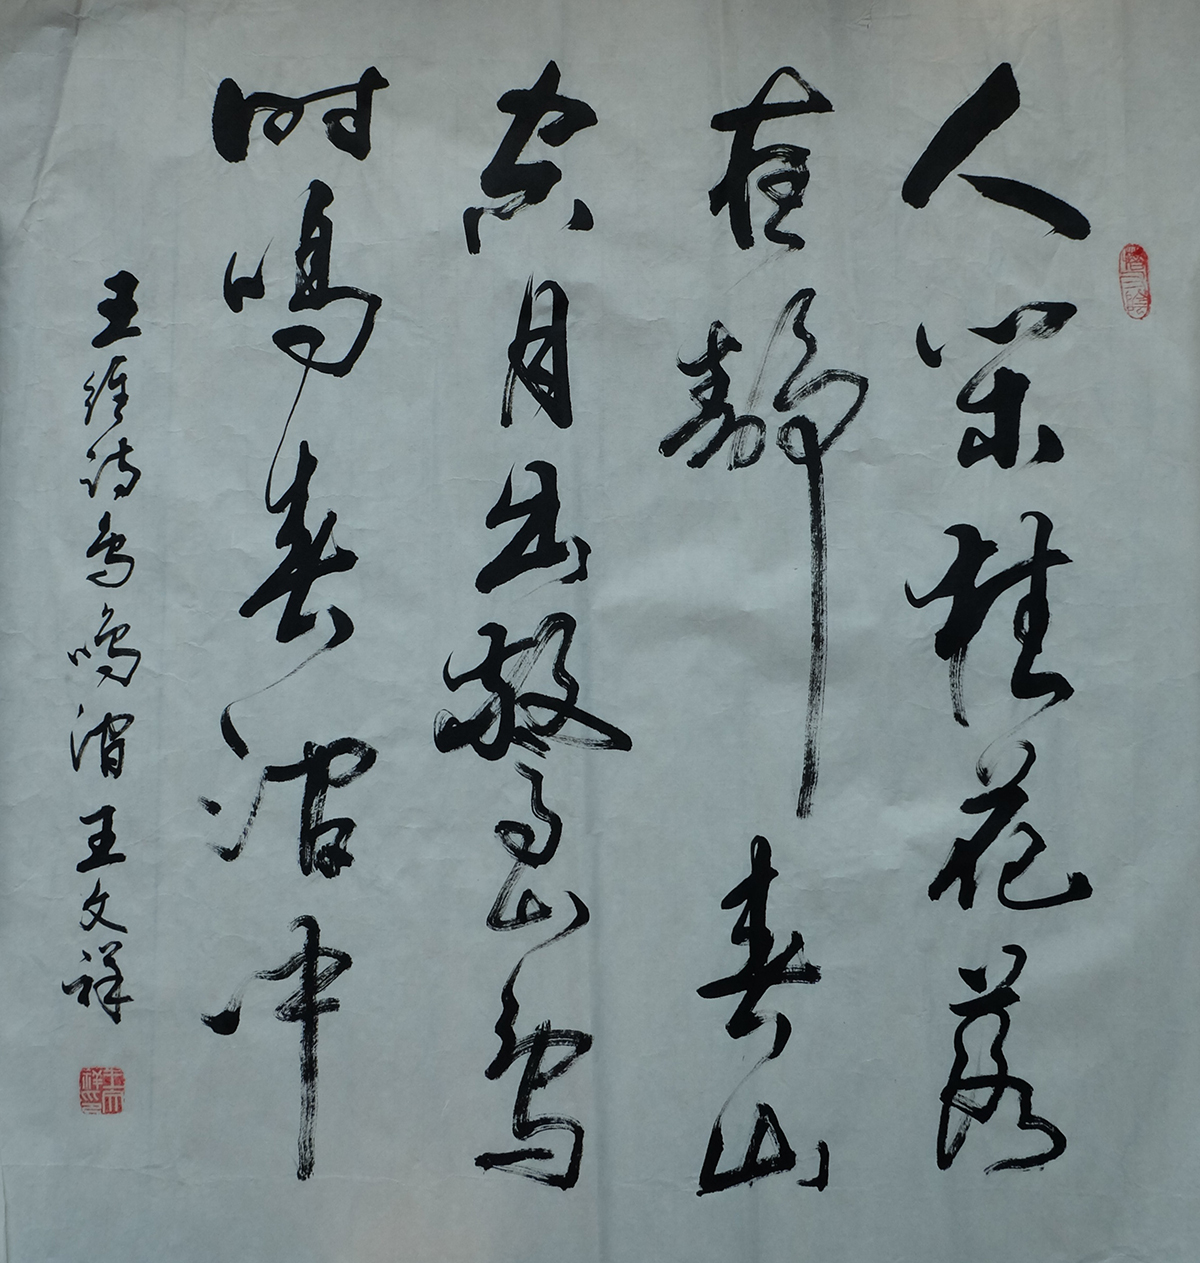 人闲桂花落
在静春山
空月出驚山鸟
时鸣春涧中
王维诗鸟鸣涧王文祥